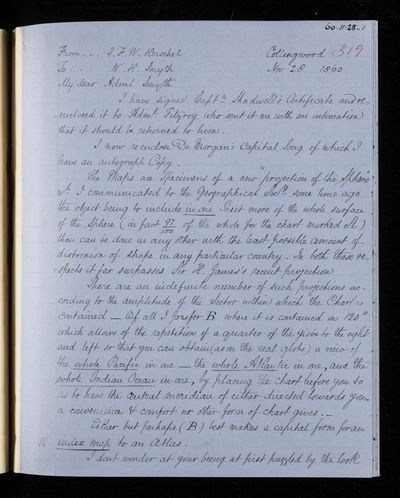 60-11-28..1
From . . . J. F. W. Herschel Collingwood 319
To . . . W. H. Smyth Nov 28 1860
My dear Adml Smyth
I have signed Captn Shadwell's Certificate and re-
enclosed it to Adml Fitzroy who sent it me with an intimation
that it should be returned to him.
I now re enclose De Morgan's Capital Song of which I
have an autograph Copy.
The Maps are Specimens of a new "projection of the Sphere"
wh I communicated to the Geographical Socty some time ago
the object being to include in one Sheet more of the whole surface
of the Sphere (in fact 97/100 of the whole for the chart marked A)
than can be done in any other with the least possible amount of
distorsion of shape in any particular country. In both these re-
spects it far surpasses Sir H. James's recent projection
There are an indefinite number of such projections ac-
cording to the amplitude of the Sector within which the Chart is
contained — Of all I prefer B where it is contained in 120°
which allows of the repetition of a quarter of the globe to the right
and left so that you can obtain (as on the real globe) a view of
the whole Pacific in one — the whole Atlantic in one, and the
whole Indian Ocean in one, by placing the chart before you so
as to have the central meridian of either directed towards you
a convenience & comfort no other form of chart gives. —
Either but perhaps (B) best makes a capital form for an
index map to an Atlas.
I dont wonder at your being at first puzzled by the look